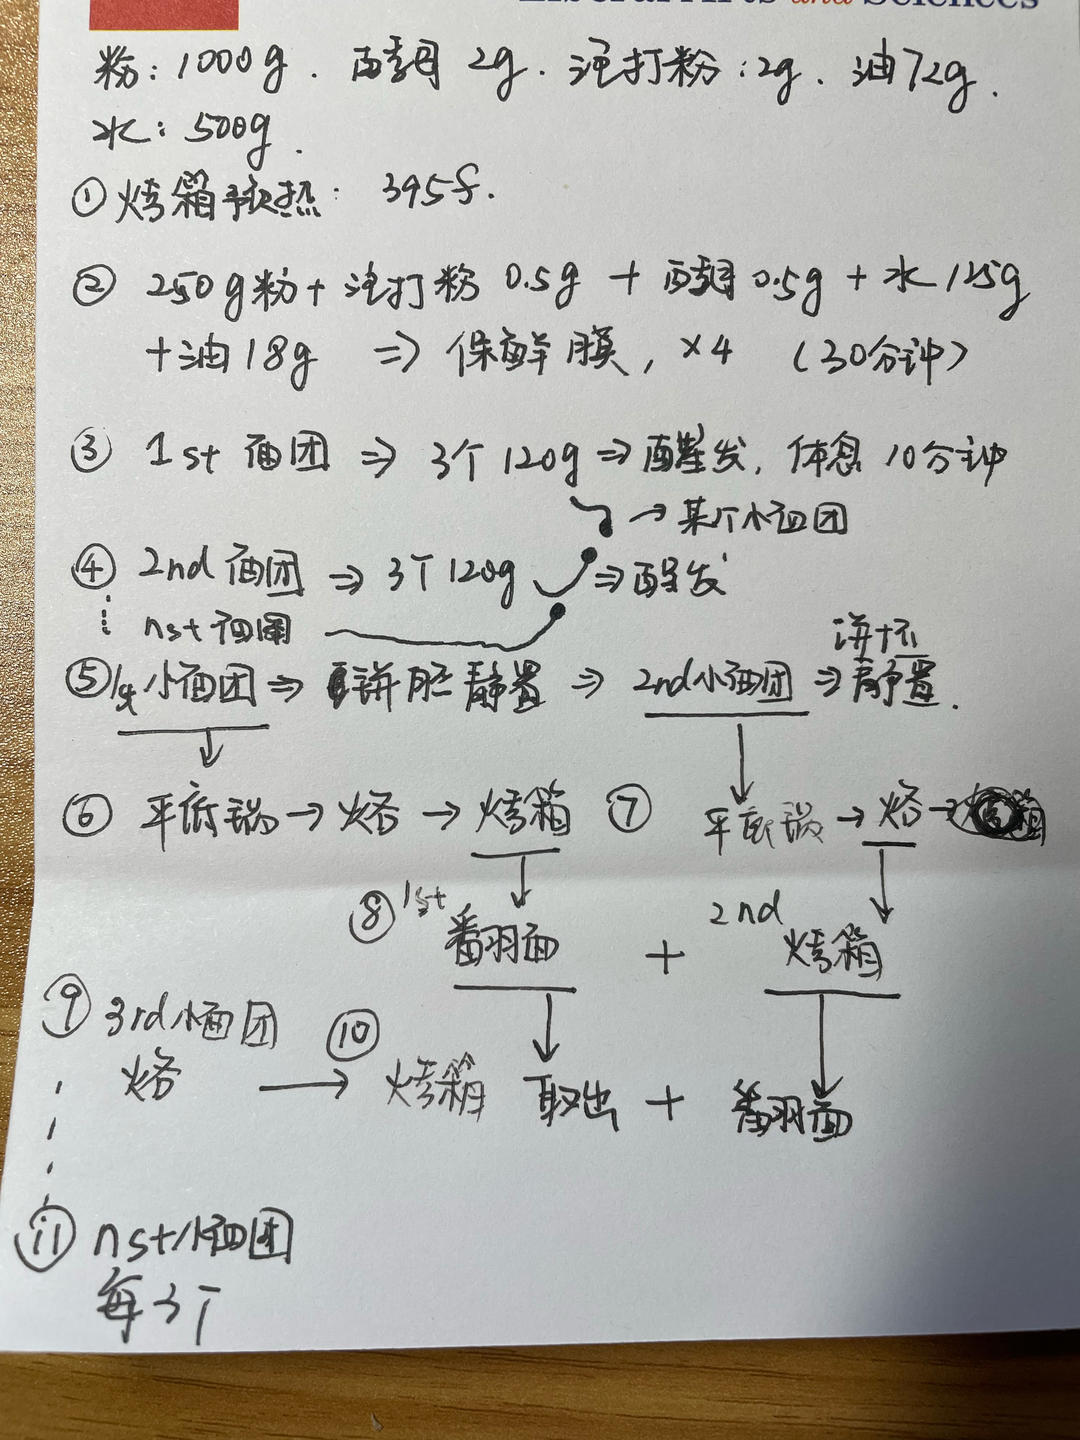 Liberal Arts and Sciences
粉：1000g. 酵母 2g. 泡打粉：2g. 油72g.
水：500g.
① 烤箱预热：395f.
② 250g粉+泡打粉 0.5g + 酵母 0.5g + 水 125g
+油 18g ⇒ 保鲜膜, ×4 (30分钟)
③ 1st 面团 ⇒ 3个 120g ⇒ 醒发, 休息 10分钟
→ 某个小面团
④ 2nd 面团 ⇒ 3个 120g ⇒ 醒发
nst 面团
饼坯
⑤ 1st 小面团 ⇒ 饼胚 静置 ⇒ 2nd 小面团 ⇒ 静置.
⑥ 平底锅 → 烙 → 烤箱 ⑦ 平底锅 → 烙 → 烤箱
⑧ 1st 翻面 + 2nd 烤箱
⑨ 3rd 小面团
烙 → ⑩ 烤箱 取出 + 翻面
⑪ nst 小面团
每3个